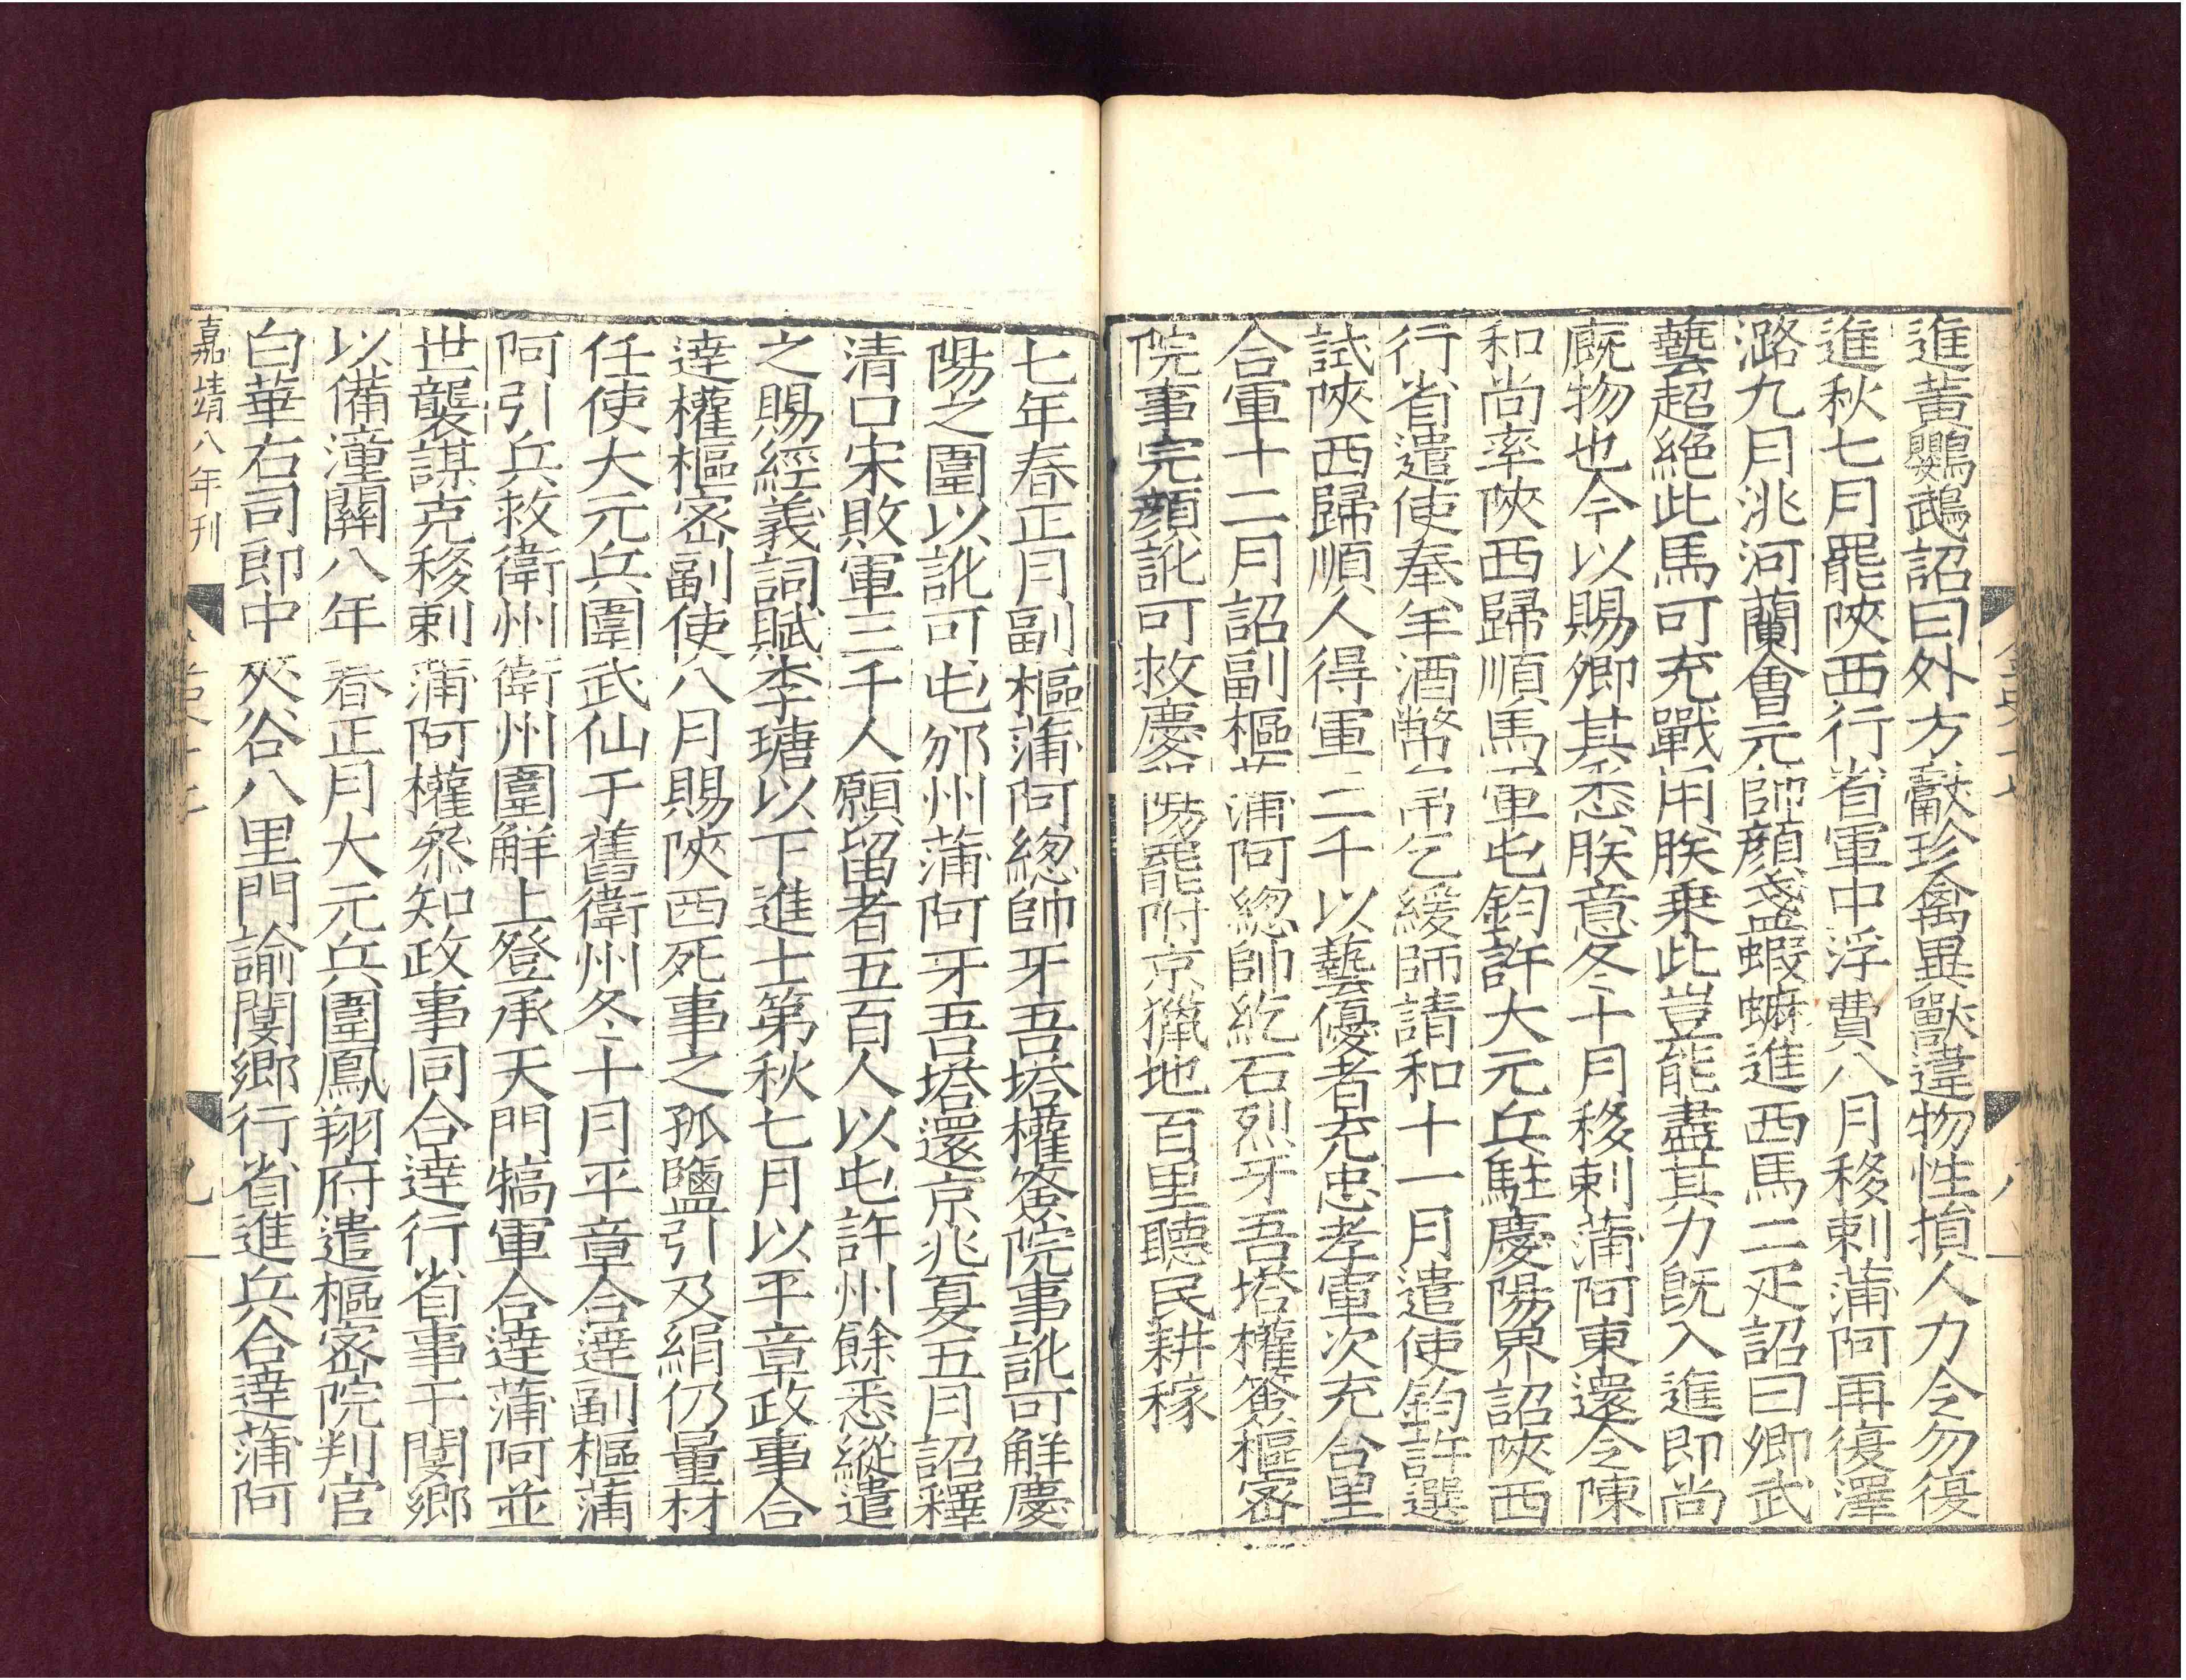 進黃鸚鵡詔曰外方獻珍禽異獸違物性損人力令勿復
進秋七月罷陝西行省軍中浮費八月移剌蒲阿再復澤
潞九月洮河蘭會元帥顔盞蝦䗫進西馬二疋詔曰卿武
藝超絶此馬可充戰用朕乗此豈能盡其力旣入進即尚
廐物也今以賜卿其悉朕意冬十月移剌蒲阿東還令陳
和尚率陝西歸順馬軍屯鈞許大元兵駐慶陽界詔陝西
行省遣使奉羊酒幣帛乞緩師請和十一月遣使鈞許選
試陝西歸順人得軍二千以藝優者充忠孝軍次充合里
合軍十二月詔副樞蒲阿緫帥紇石烈牙吾塔權簽樞宻
院事完顔訛可救慶陽罷附京獵地百里聽民耕稼
七年春正月副樞蒲阿緫帥牙吾塔權簽院事訛可觧慶
陽之圍以訛可屯邠州蒲阿牙吾塔還京兆夏五月詔釋
清口宋敗軍三千人願留者五百人以屯許州餘悉縱遣
之賜經義詞賦李瑭以下進士第秋七月以平章政事合
達權樞宻副使八月賜陝西死事之孤鹽引及絹仍量材
任使大元兵圍武仙于舊衛州冬十月平章合達副樞蒲
阿引兵救衛州衛州圍觧上登承天門犒軍合達蒲阿並
世襲謀克移剌蒲阿權叅知政事同合達行省事于閿鄉
以備潼關八年春正月大元兵圍鳳翔府遣樞宻院判官
白華右司郎中夾谷八里門諭閿鄉行省進兵合達蒲阿
嘉靖八年刊
九